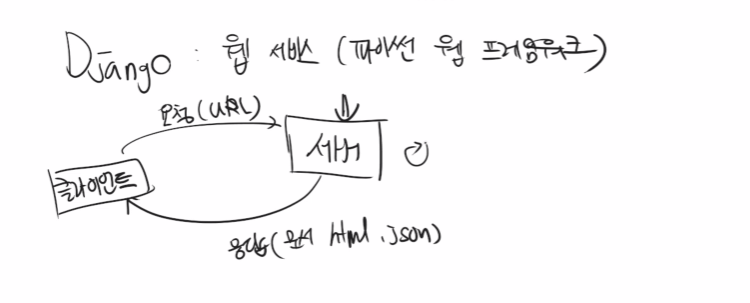 Django : 웹 서비스 (파이썬 웹 프레임워크)
요청(URL)
서버
클라이언트
응답(문서 html, json)